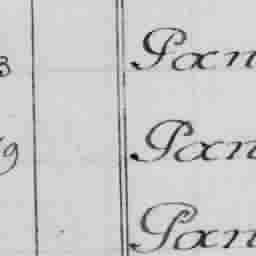 3 Pan
9 Pan
Pan